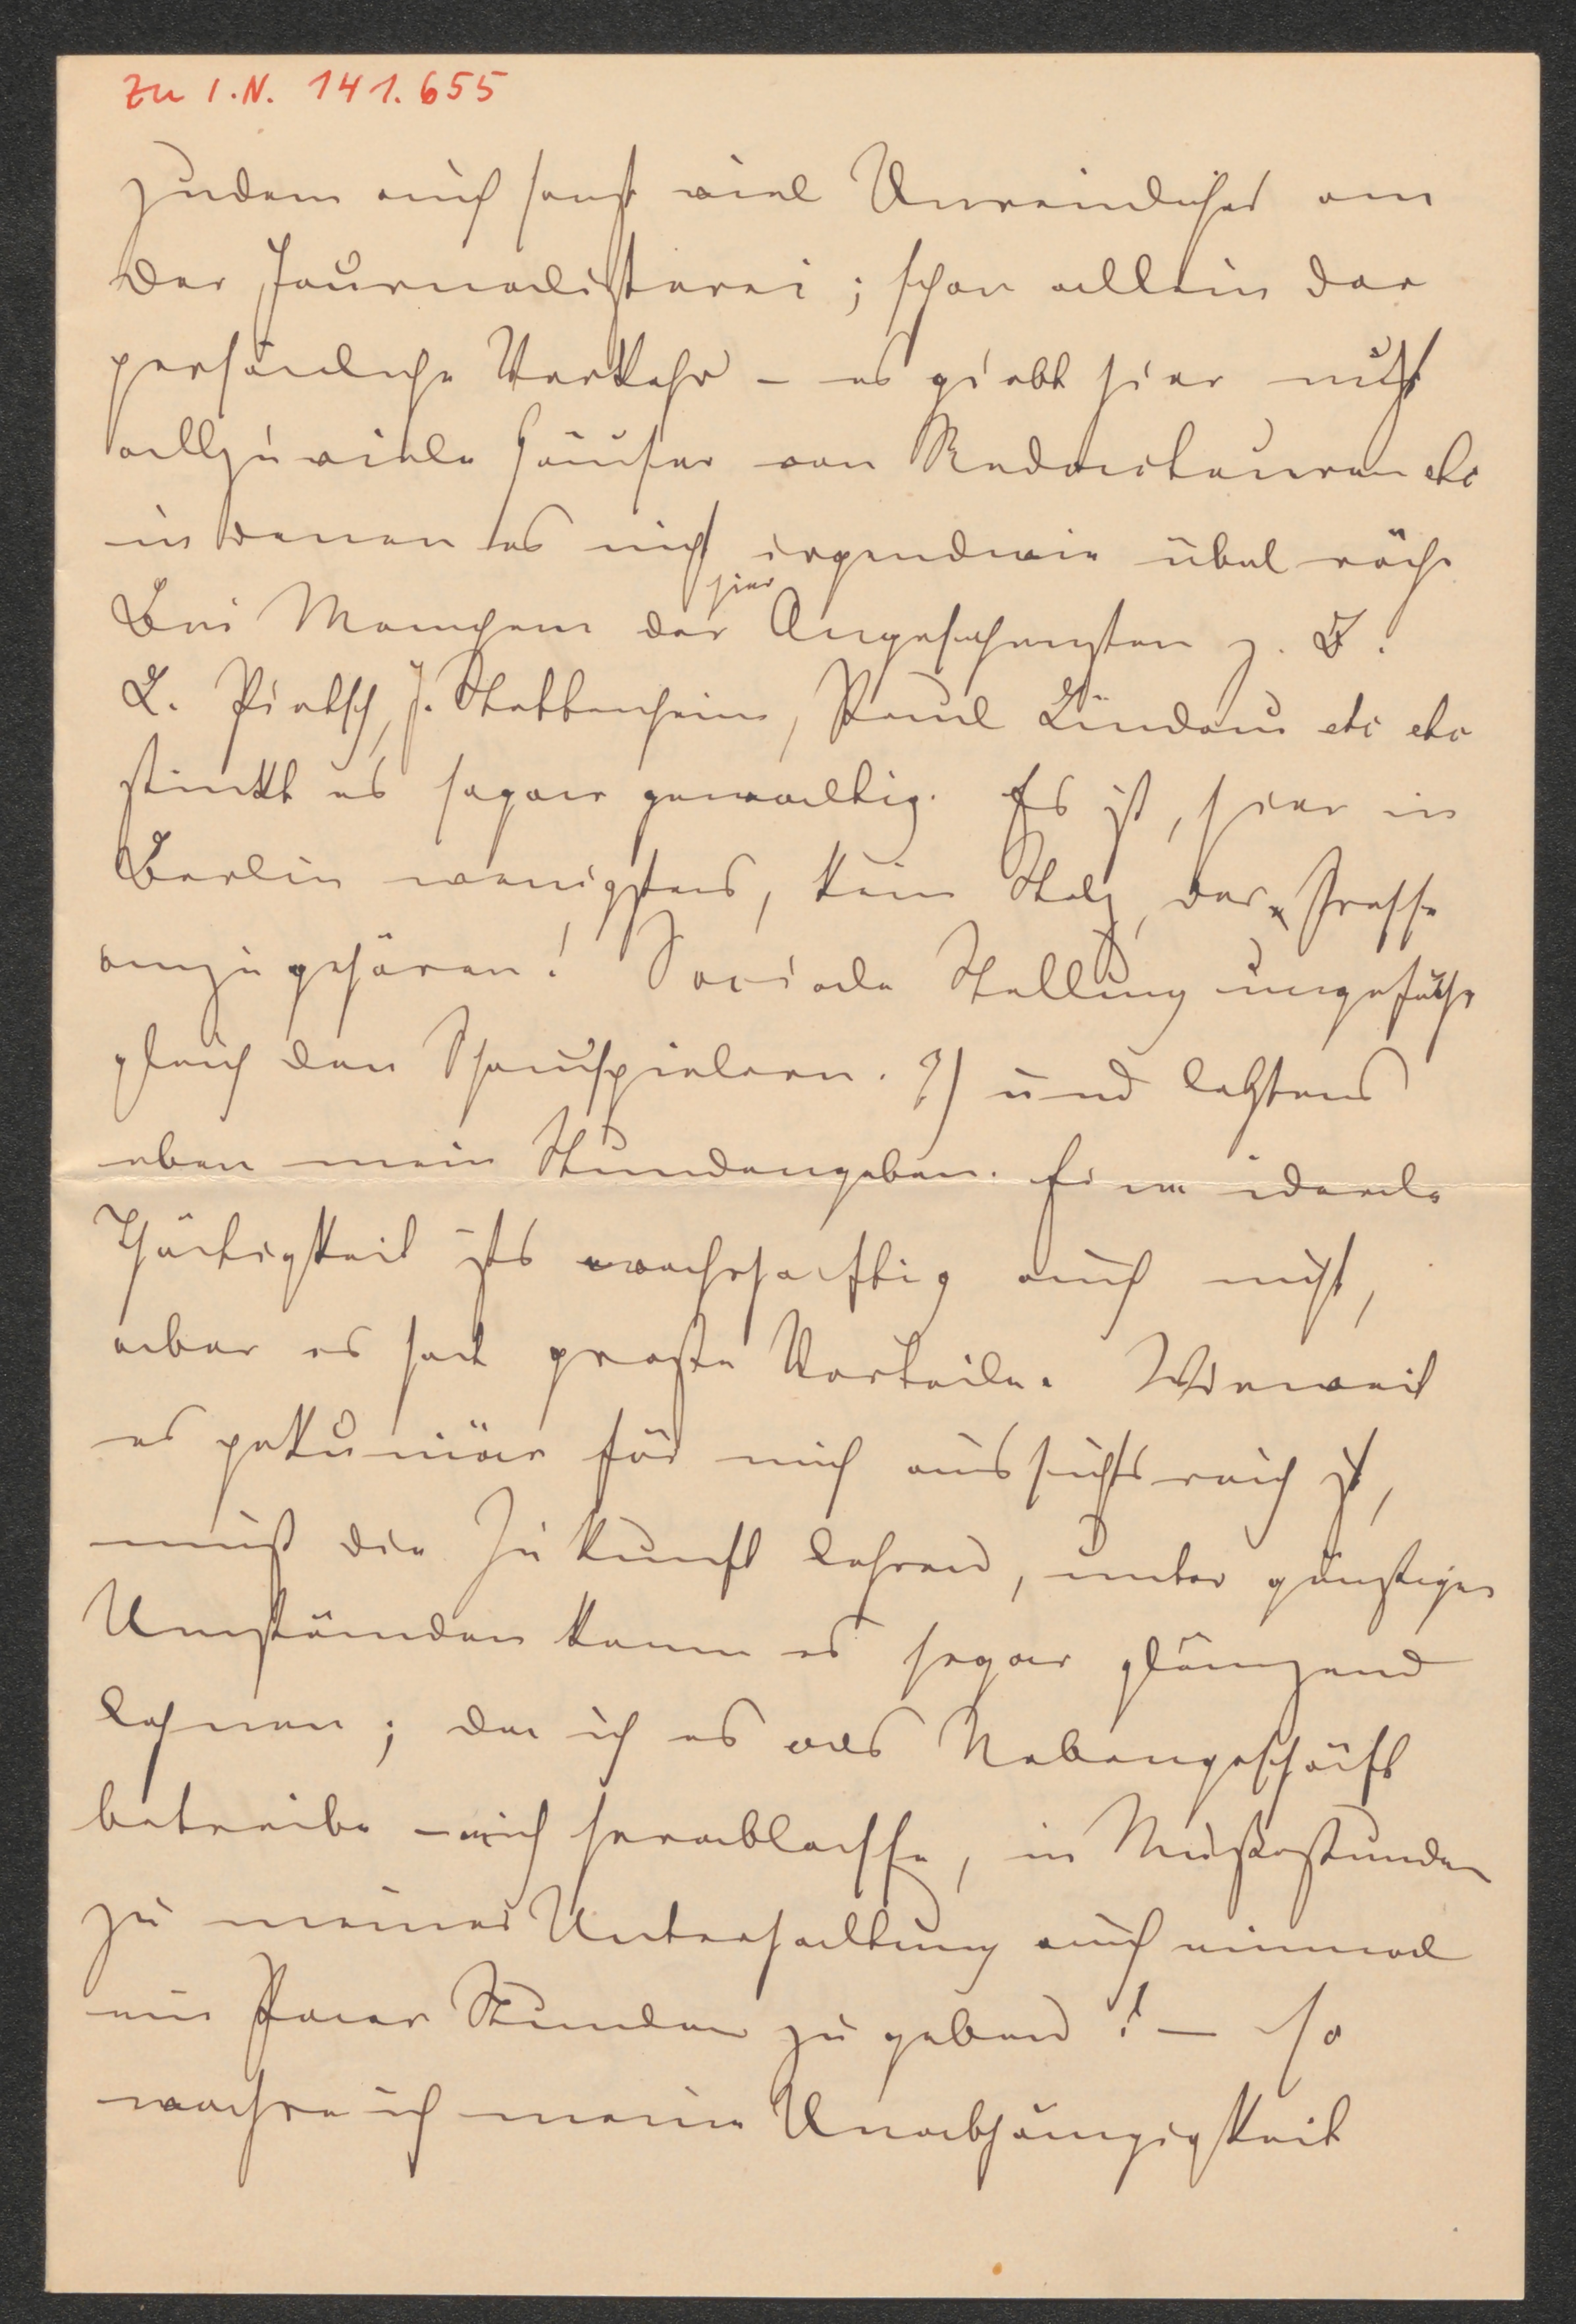 Zu I.N. 141.655
zudem auch sonst viel Unreinliches an
der Journalisterei; schon allein der
persönliche Verkehr – es giebt hier nicht
allzuviele Häuser von Redacteuren etc
in denen es nicht irgendwie übel röche
hier
Bei Manchem der Angesehensten z. B.
L. Pietsch, J. Stettenheim, Paul Lindau etc etc
stinkt es sogar gewaltig. Es ist, hier in
Berlin wenigstens, kein Stolz, der Presse
anzugehören! Sociale Stellung ungefähr
gleich den Schauspielern. ?) und letztens
eben mein Stundengeben. Eine ideale
Thätigkeit ists wahrhaftig auch nicht,
aber es hat große Vorteile. Wieweit
es pekuniär für mich aussichtsreich ist,
muß die Zukunft lehren, unter günstigen
Umständen kann es sogar glänzend
lohnen; da ich es als Nebengeschäft
betreibe – mich herablasse, in Mußestunden
zu meiner Unterhaltung auch einmal
ein Paar Stunden zu geben! – so
wahre ich meine Unabhängigkeit